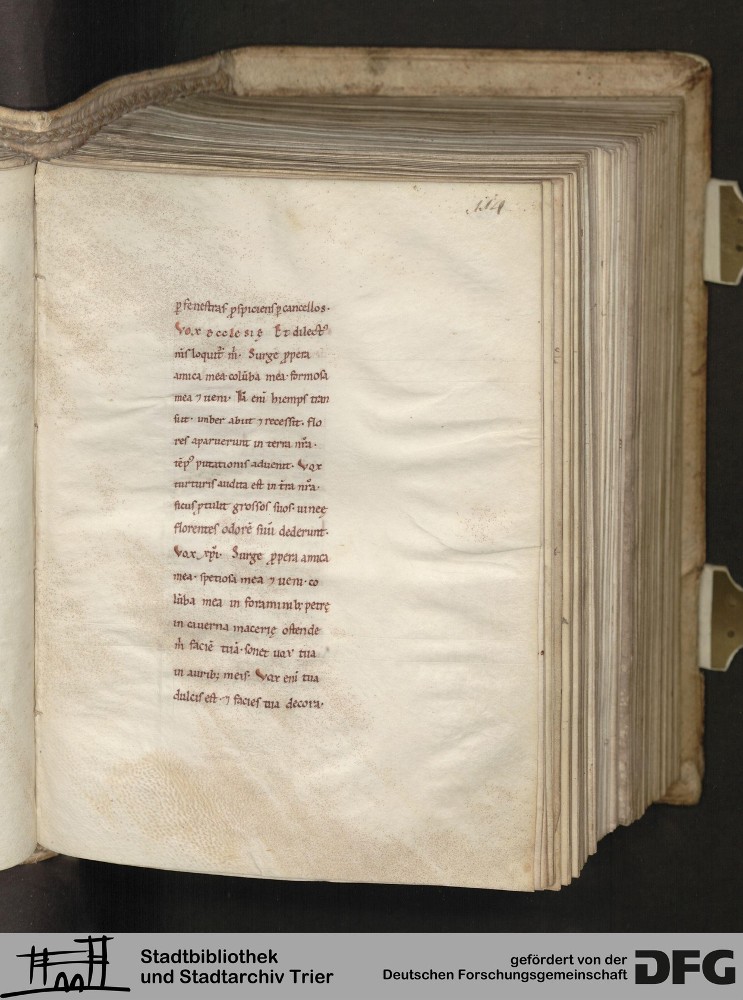 114
ꝑ fenestras ꝓspiciens ꝑ cancellos.
Vox ecclesię Et dilectꝰ
m̄s loquit̄ m̄. Surge ꝓpera
amica mea colūba mea formosa
mea ⁊ ueni. Iā eni hiemps tran
siit. imber abiit ⁊ recessit. flo
res aparuerunt in terra nr̄a.
tēpꝰ putationis aduenit. Vox
turturis audita est in t̄ra nr̄a.
ficus ꝓtulit grossos suos. uineę
florentes odorē suū dederunt.
Vox xp̄i. Surge ꝓpera amica
mea. speciosa mea ⁊ ueni. co
lūba mea in foraminib; petrę
in cauerna macerię ostende
m̄ faciē tuā. sonet uox tua
in aurib; meis. Vox eni tua
dulcis est. ⁊ facies tua decora.
Stadtbibliothek
und Stadtarchiv Trier
gefördert von der
Deutschen Forschungsgemeinschaft
DFG